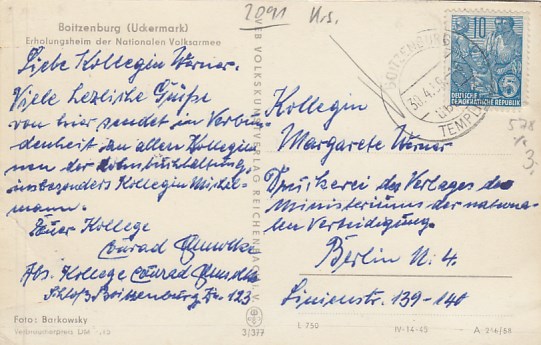 Boitzenburg (Uckermark)
Erholungsheim der Nationalen Volksarmee
Liebe Kollegin Werner.
Viele herzliche Grüße
von hier sendet in Verbun-
denheit an allen Kollegin-
nen der Lohnbuchhaltung,
insbesonders Kollegin Michel-
mann.
Euer Kollege
Conrad
Abs. Kollege Conrad
Schloß Boitzenburg Zi. 123
Foto: Barkowsky
Verbraucherpreis DM
VEB VOLKSKUNSTVERLAG REICHENBACH I. V.
3/377
2091 U.s.
BOITZENBURG
30.4.58
TEMPLIN
10
5
DEUTSCHE
DEMOKRATISCHE REPUBLIK
578
3.
Kollegin
Margarete Werner
Druckerei des Verlages des
Ministeriums der nationa-
len Verteidigung.
Berlin N. 4.
Linienstr. 139-140
L 750
IV-14-45
A 216/58